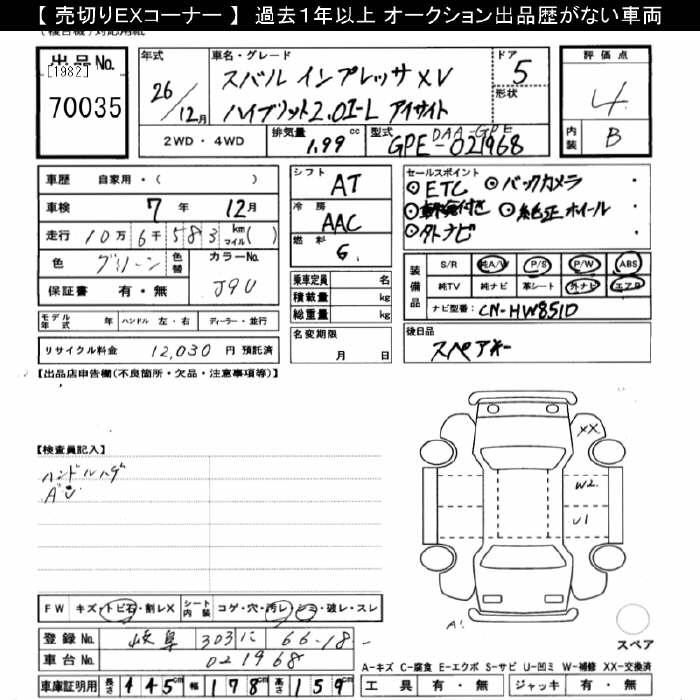 【 売切りEXコーナー 】 過去1年以上 オークション出品歴がない車両
出品No.
[1982]
70035
年式
26/12月
車名・グレード
スバル インプレッサXV
ハイブリット2.0I-L アイサイト
ドア
5
形状
評価点
4
内装
B
2WD・4WD
排気量
1.99 cc
型式
DAA-GPE
GPE-021968
車歴 自家用・( )
車検 7年 12月
走行 10万6千583 km マイル( )
色 グリーン 色替 カラーNo. J9U
保証書 有・無
モデル年式 年 ハンドル 左・右 ディーラー・並行
リサイクル料金 12,030 円 預託済
シフト AT
冷房 AAC
燃料 G
乗車定員 名
積載量 kg
総重量 kg
名変期限 月 日
セールスポイント
ETC ◎バックカメラ
◎純正ホイール
外ナビ
装備品
S/R 純A/W P/S P/W ABS
純TV 純ナビ 革シート 外ナビ エアB
ナビ型番( CN-HW851D
後日品
スペアキー
【出品店申告欄(不良箇所・欠品・注意事項等)】
【検査員記入】
ハンドルハゲ
XX
W2
U1
FW キズ・トビ石・割レX シート内装 コゲ・穴・汚レ・シミ・破レ・スレ
登録No. 岐阜 303 に 66-18
車台No. 021968
車庫証明用 長さ 445 幅 178 高さ 159
スペア
A-キズ C-腐食 E-エクボ S-サビ U-凹ミ W-補修 XX-交換済
工具 有・無 ジャッキ 有・無